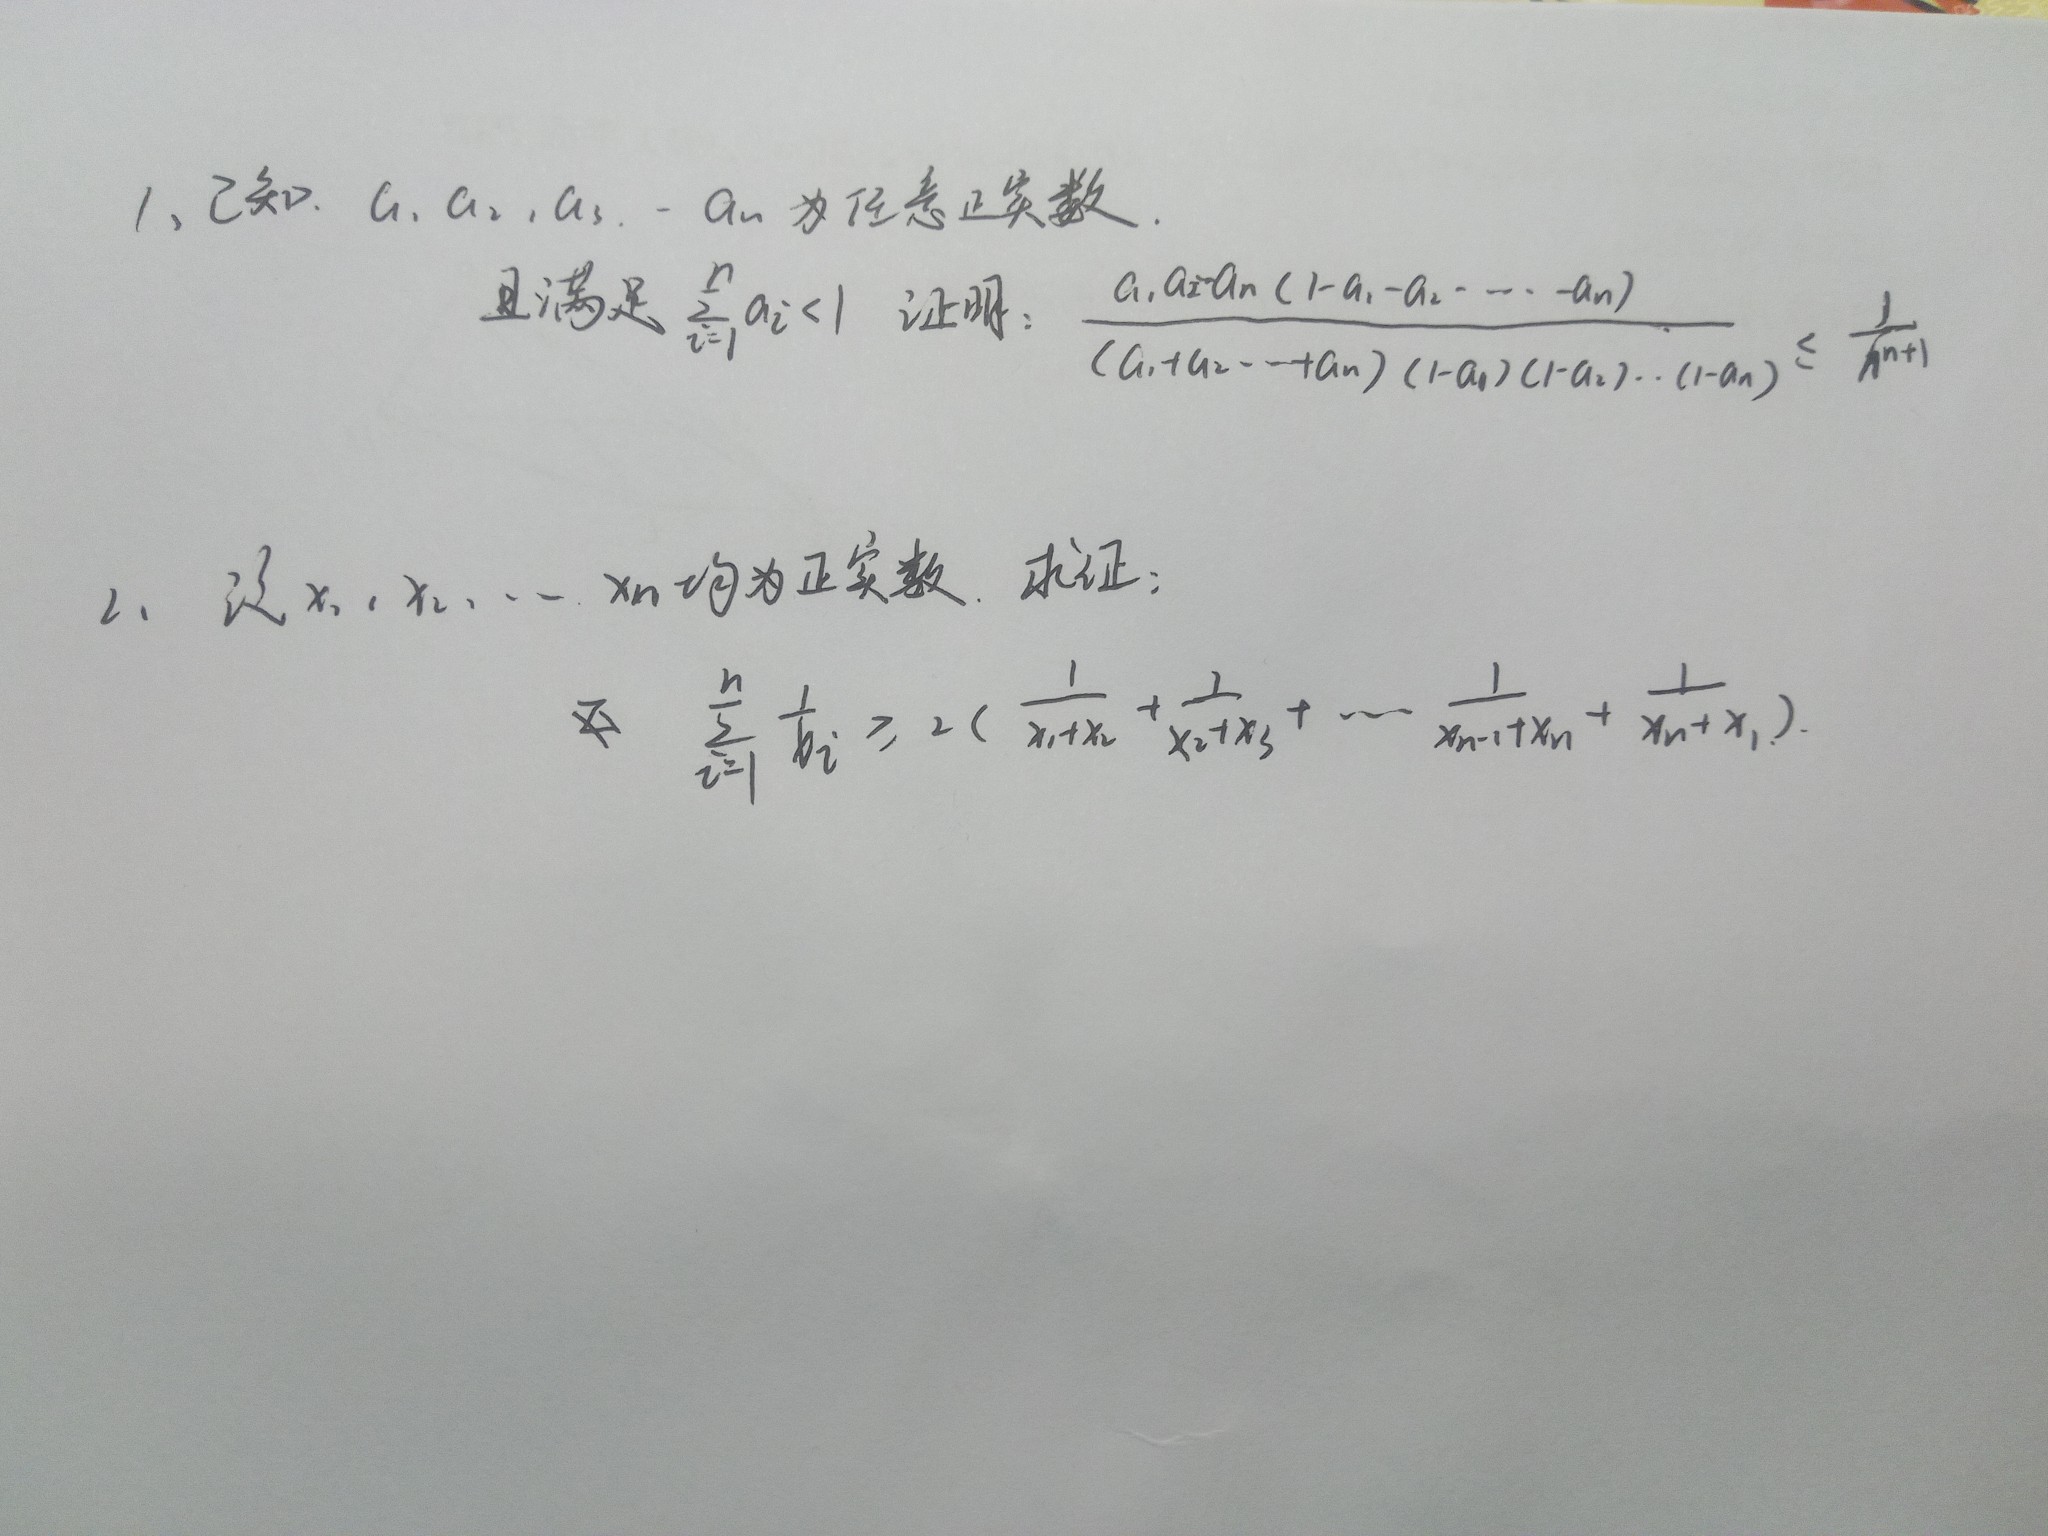 1、已知. a₁, a₂, a₃. - aₙ 为任意正实数.
且满足 \sum_{i=1}^{n} aᵢ < 1 证明: \frac{a₁a₂-aₙ(1-a₁-a₂-…-aₙ)}{(a₁+a₂-…+aₙ)(1-a₁)(1-a₂)…(1-aₙ)} ≤ \frac{1}{n^{n+1}}
2、设 x₁, x₂, … xₙ 均为正实数. 求证:
\sum_{i=1}^{n} \frac{1}{xᵢ} ≥ 2(\frac{1}{x₁+x₂} + \frac{1}{x₂+x₃} + … \frac{1}{xₙ₋₁+xₙ} + \frac{1}{xₙ+x₁}).